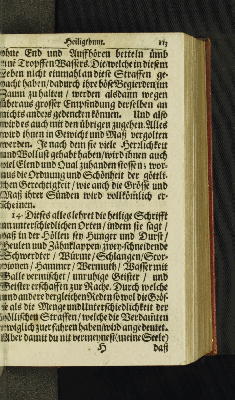 Heiligthum. 113
ohne End und Auffhören betteln umb
eine Tropffen Wassers. Die welche in diesem
Leben nicht einmahl an diese Straffen ge-
dacht haben/ dadurch ihre böse Begierden im
Zaum zu halten / werden alsdann wegen
überaus grosser Empfindung derselben an
nichts anders gedencken können. Und also
wird es auch mit den übrigen zugehen. Alles
wird ihnen in Gewicht und Maß vergolten
werden. Je nach dem sie viele Herlichkeit
und Wollust gehabt haben/ wird ihnen auch
viel Elend und Qual zuhanden stossen: wor-
aus die Ordnung und Schönheit der göttli-
chen Gerechtigkeit / wie auch die Grösse und
Maß ihrer Sünden wird vollkömlich er-
scheinen.
14. Dieses alles lehret die heilige Schrifft
an unterschiedlichen Orten / indem sie sagt /
daß in der Höllen sey Hunger und Durst /
Heulen und Zähnklappen / zwey-schneidende
Schwerdter / Würme / Schlangen / Scor-
pionen / Hammer / Wermuth / Wasser mit
Galle vermischet / unruhige Geister / und
Geister erschaffen zur Rache. Durch welche
und andere dergleichen Reden sowol die Grös-
se als die Menge und Unterschiedlichkeit der
höllischen Straffen / welche die Verdamten
ewiglich zuerfahren haben/ wird angedeutet.
Aber damit du nit vermeynest (meine Seele)
H daß